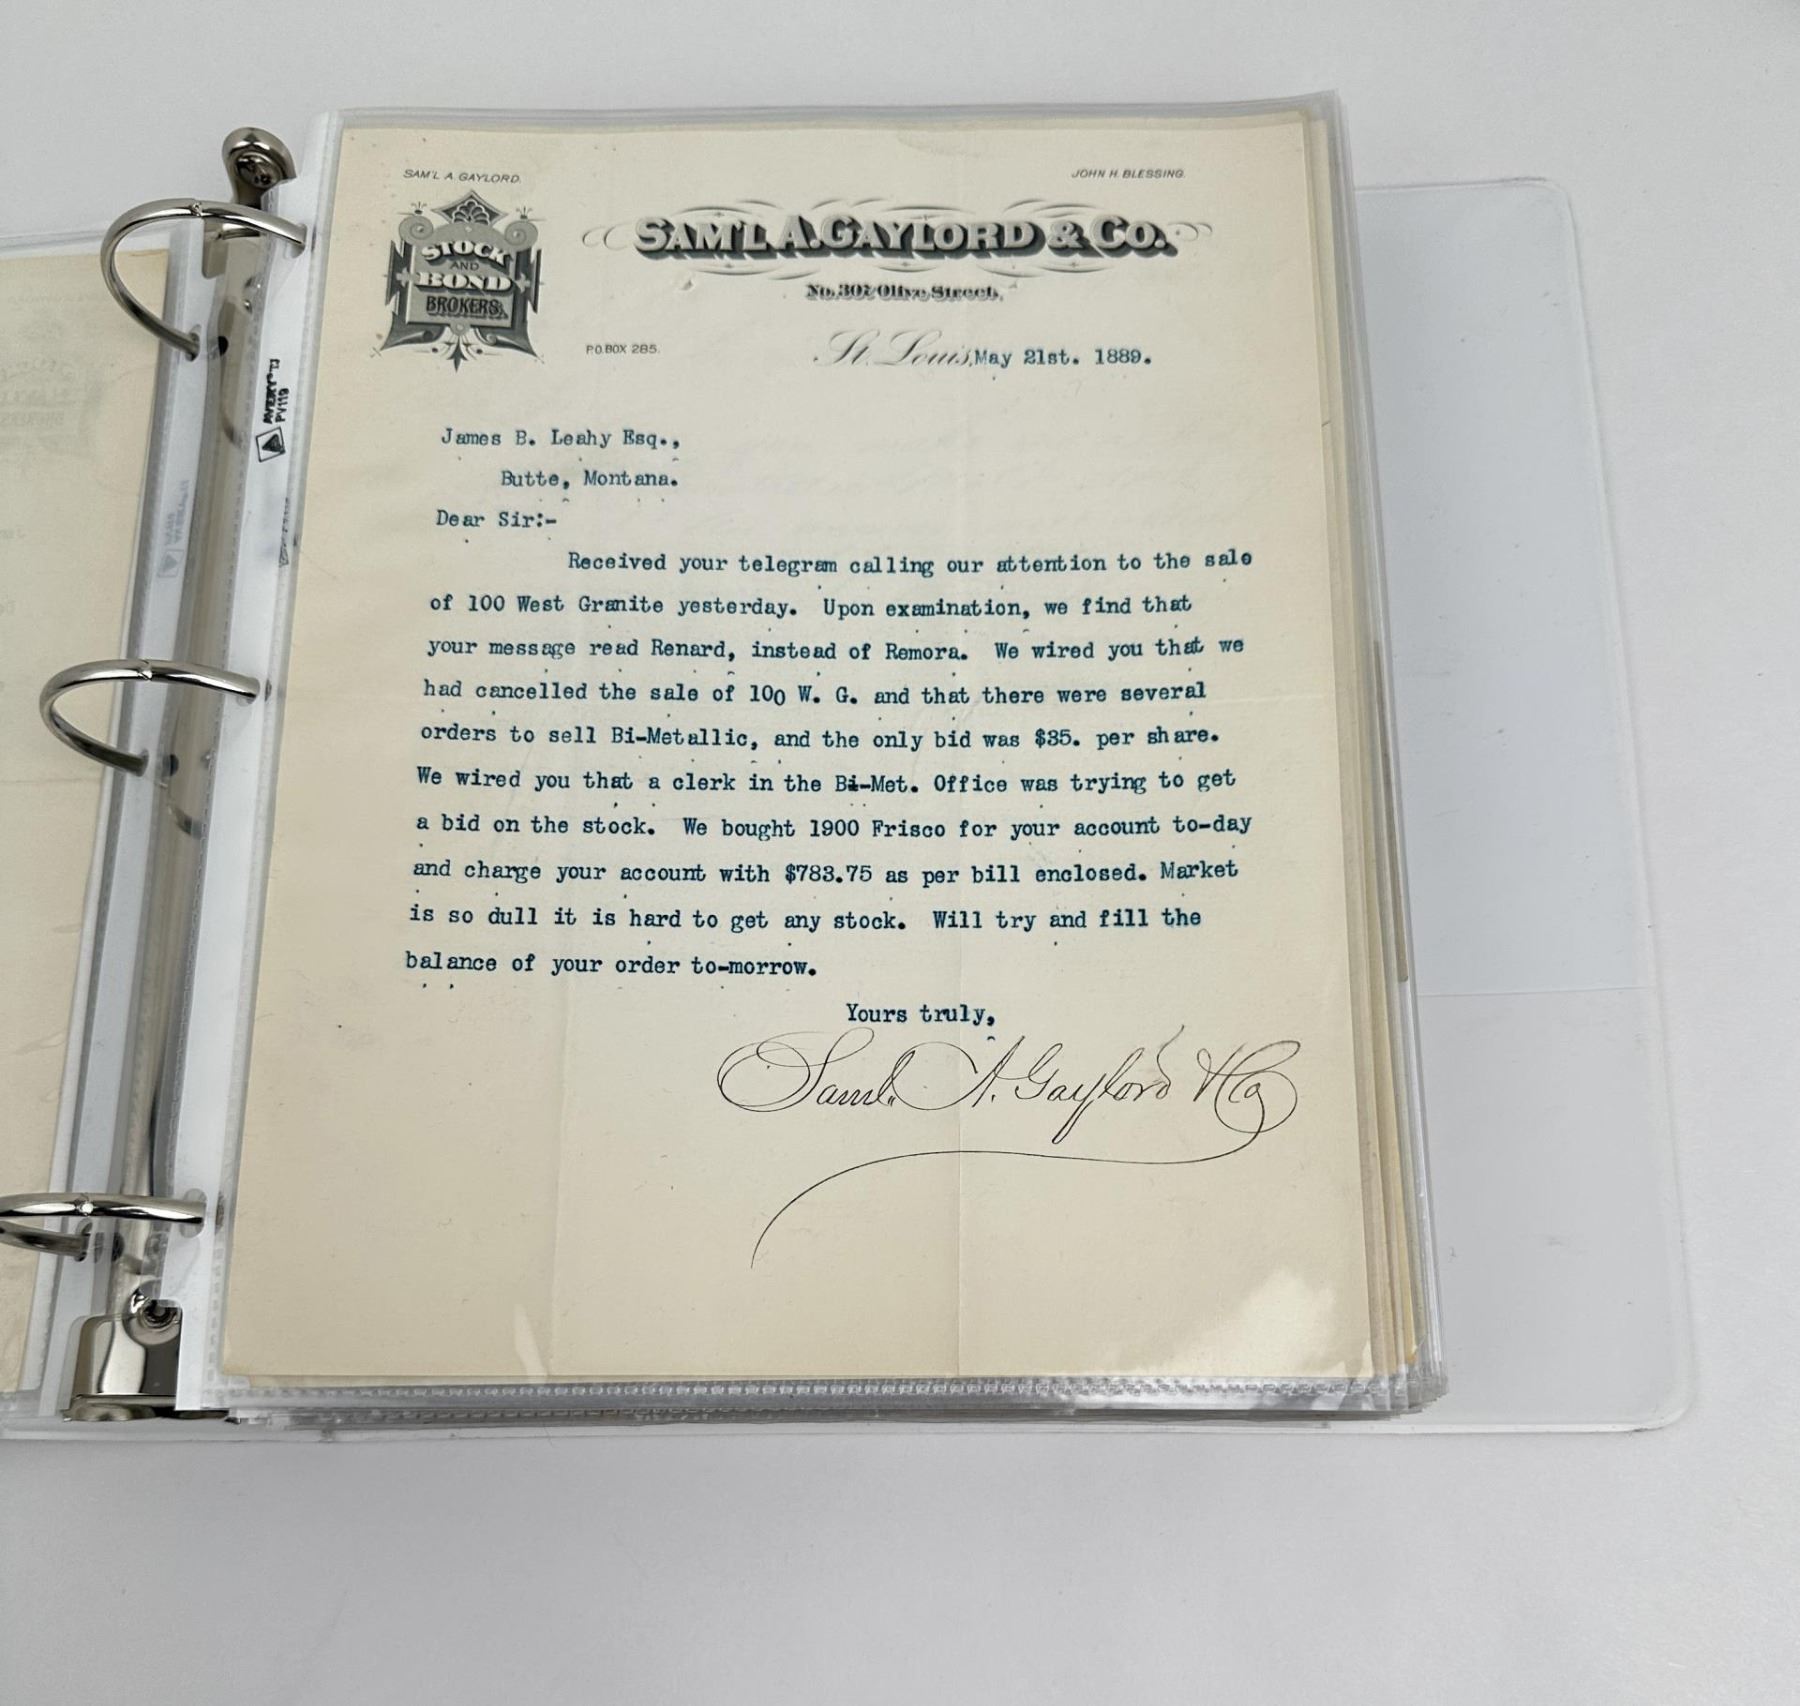 SAM'L A. GAYLORD.
JOHN H. BLESSING.
STOCK
AND
BOND
BROKERS.
SAM'L A. GAYLORD & CO.
No. 307 Olive Street.
P.O. BOX 285.
St. Louis, May 21st. 1889.
AVERY
PV119
James B. Leahy Esq.,
Butte, Montana.
Dear Sir:-
Received your telegram calling our attention to the sale
of 100 West Granite yesterday. Upon examination, we find that
your message read Renard, instead of Remora. We wired you that we
had cancelled the sale of 100 W. G. and that there were several
orders to sell Bi-Metallic, and the only bid was $35. per share.
We wired you that a clerk in the Bi-Met. Office was trying to get
a bid on the stock. We bought 1900 Frisco for your account to-day
and charge your account with $783.75 as per bill enclosed. Market
is so dull it is hard to get any stock. Will try and fill the
balance of your order to-morrow.
Yours truly,
Saml. A. Gaylord & Co